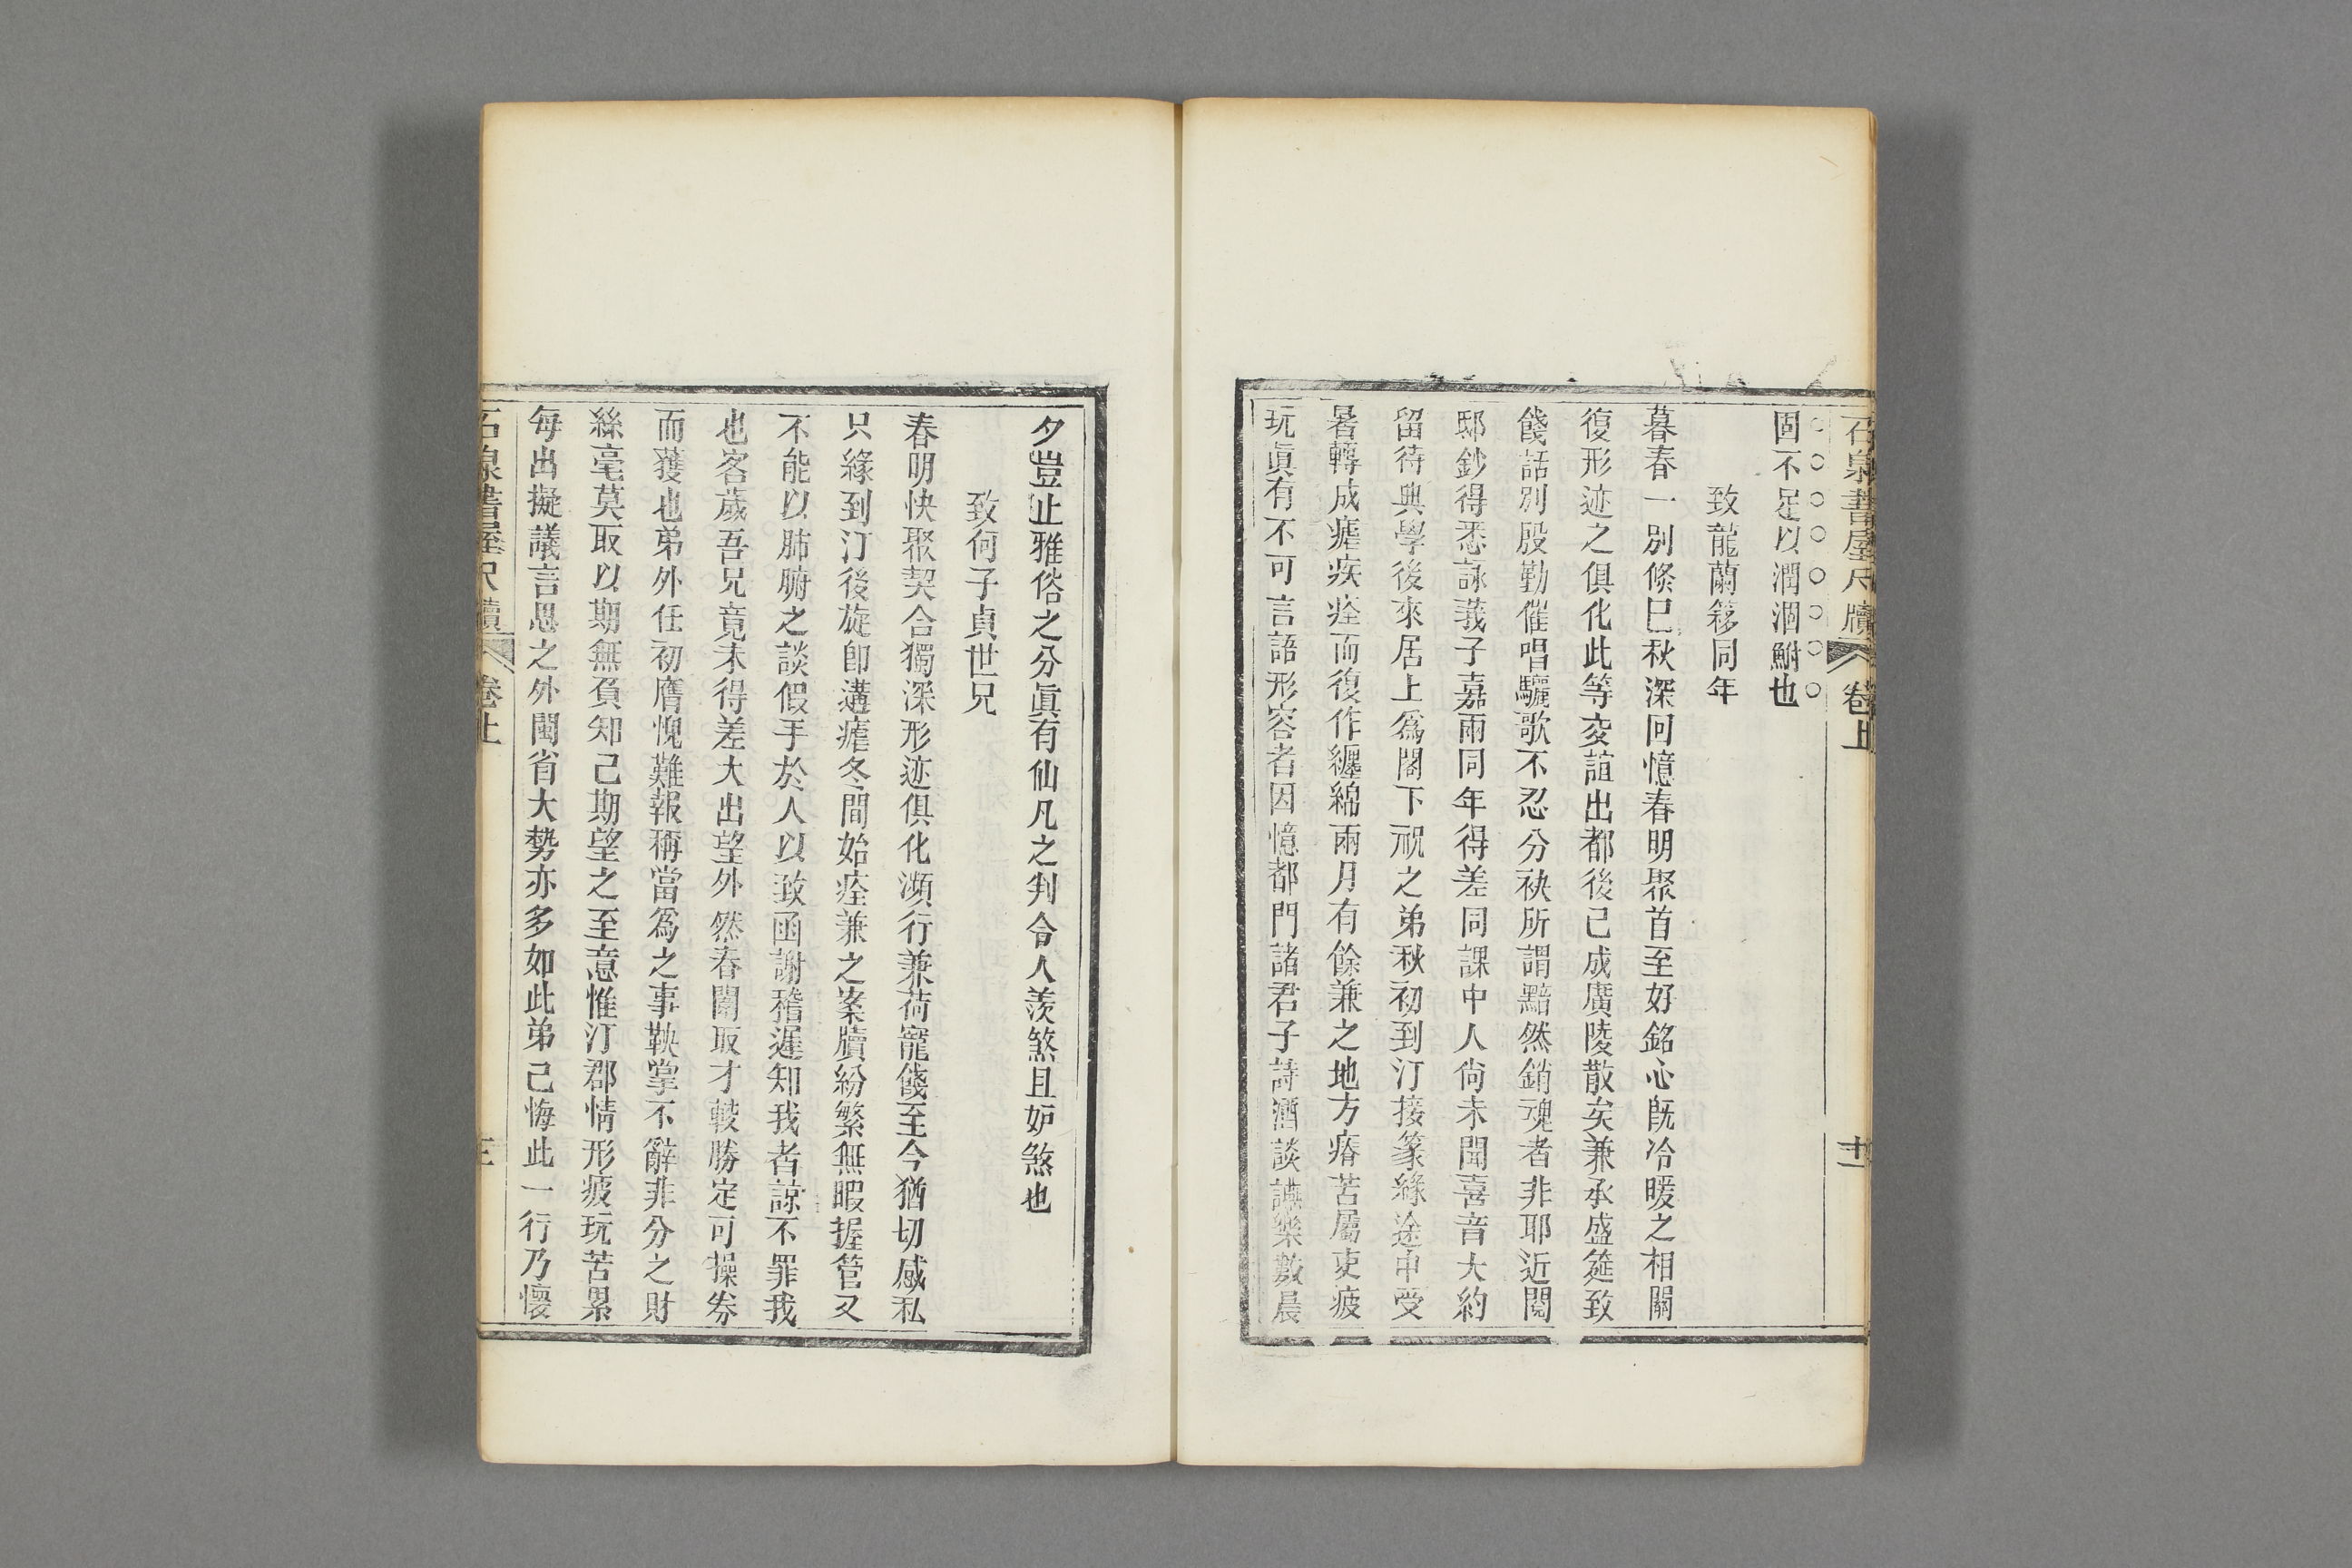 石泉書屋尺牘 卷上 十二
固不足以潤涸鮒也
致龍蘭簃同年
暮春一別倐巳秋深回憶春明聚首至好銘心旣冷暖之相關
復形迹之俱化此等交誼出都後己成廣陵散矣兼承盛筵致
餞話別殷勤催唱驪歌不忍分袂所謂黯然銷魂者非耶近閱
邸鈔得悉詠莪子嘉雨同年得差同課中人尙未聞喜音大約
留待典學後來居上爲閣下祝之弟秋初到汀接篆緣途中受
暑轉成瘧疾痊而復作纏綿兩月有餘兼之地方瘠苦屬吏疲
玩眞有不可言語形容者因憶都門諸君子詩酒談讌樂數晨
夕豈止雅俗之分眞有仙凡之判令人羨煞且妒煞也
致何子貞世兄
春明快聚契合獨深形迹俱化瀕行兼荷寵餞至今猶切感私
只緣到汀後旋卽遘瘧冬間始痊兼之案牘紛繁無暇握管又
不能以肺腑之談假手於人以致函謝稽遲知我者諒不罪我
也客歲吾兄竟未得差大出望外然春闈取才較勝定可操券
而獲也弟外任初膺愧難報稱當爲之事鞅掌不辭非分之財
絲毫莫取以期無負知己期望之至意惟汀郡情形疲玩苦累
每出擬議言思之外閩省大勢亦多如此弟己悔此一行乃懷
石泉書屋尺牘 卷上